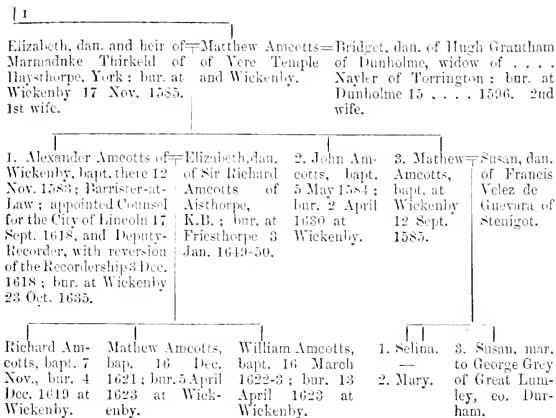 1
Elizabeth, dan. and heir of
Marmaduke Thirkeld of
Haysthorpe, York; bur. at
Wickenby 17 Nov. 1585.
1st wife.
Matthew Amcotts
of Vere Temple
and Wickenby.
Bridget, dan. of Hugh Grantham
of Dunholme, widow of . . . .
Nayler of Torrington; bur. at
Dunholme 15 . . . . 1596. 2nd
wife.
1. Alexander Amcotts of
Wickenby, bapt. there 12
Nov. 1583; Barrister-at-
Law; appointed Counsel
for the City of Lincoln 17
Sept. 1618, and Deputy-
Recorder, with reversion
of the Recordership 3 Dec.
1618; bur. at Wickenby
23 Oct. 1635.
Elizabeth, dan.
of Sir Richard
Amcotts of
Aisthorpe,
K.B.; bur. at
Friesthorpe 3
Jan. 1649-50.
2. John Am-
cotts, bapt.
5 May 1584;
bur. 2 April
1630 at
Wickenby.
3. Mathew
Amcotts,
bapt. at
Wickenby
12 Sept.
1585.
Susan, dan.
of Francis
Velez de
Guevara of
Stenigot.
Richard Am-
cotts, bapt. 7
Nov., bur. 4
Dec. 1619 at
Wickenby.
Mathew Amcotts,
bap. 16 Dec.
1621; bur. 5 April
1623 at Wick-
enby.
William Amcotts,
bapt. 16 March
1622-3; bur. 13
April 1623 at
Wickenby.
1. Selina.
—
2. Mary.
3. Susan, mar.
to George Grey
of Great Lum-
ley, co. Dur-
ham.